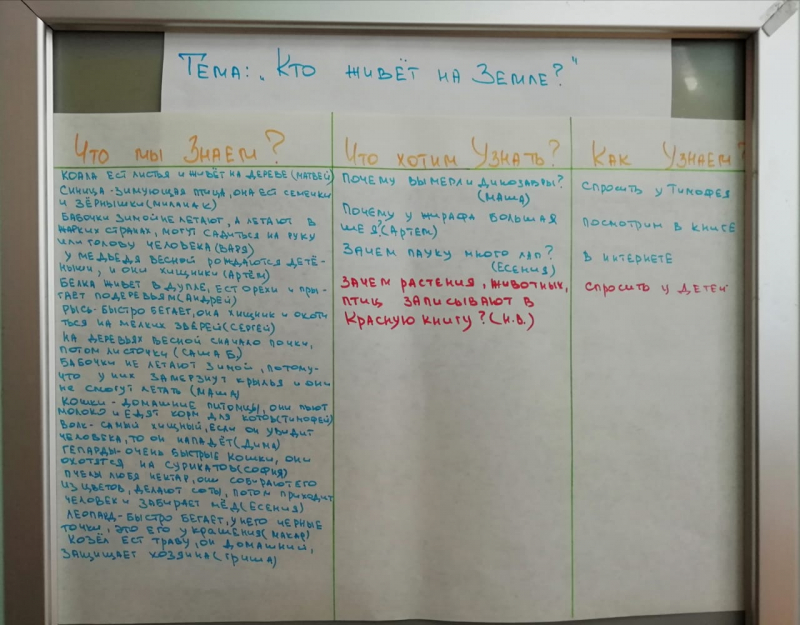 Тема: „Кто живёт на Земле?"
Что мы Знаем?
Коала ест листья и живёт на дереве (Матвей)
Синица - зимующая птица, она ест семечки
и зёрнышки (Милана К)
Бабочки зимой не летают, а летают в
жарких странах, могут садиться на руку
или голову человека (Варя)
У медведя весной рождаются детё-
ныши, и они хищники (Артём)
Белка живёт в дупле, ест орехи и пры-
гает по деревьям (Андрей)
Рысь - быстро бегает, она хищник и охоти
ться на мелких зверей (Сергей)
На деревьях весной сначало почки,
потом листочки (Саша Б.)
Бабочки не летают зимой, потому-
что у них замёрзнут крылья и они
не смогут летать (Маша)
Кошки - домашние питомцы, они пьют
молоко и едят корм для котов (Тимофей)
Волк - самый хищный, если он увидит
человека, то он нападёт (Дима)
Гепарды - очень быстрые кошки, они
охотятся на сурикатов (София)
Пчелы любя нектар, они собирают его
из цветов, делают соты, потом приходит
человек и забирает мёд (Есения)
Леопард - быстро бегает, у него черные
точки, это его украшения (Макар)
Козёл ест траву, он домашний,
защищает хозяина (Гриша)
Что хотим Узнать?
Почему вымерли динозавры?
(Маша)
Почему у жирафа большая
шея? (Артём)
Зачем пауку много лап?
(Есения)
Зачем растения, животных,
птиц записывают в
Красную книгу? (Н.В.)
Как Узнаем?
Спросить у Тимофея
Посмотрим в книге
В интернете
Спросить у детей